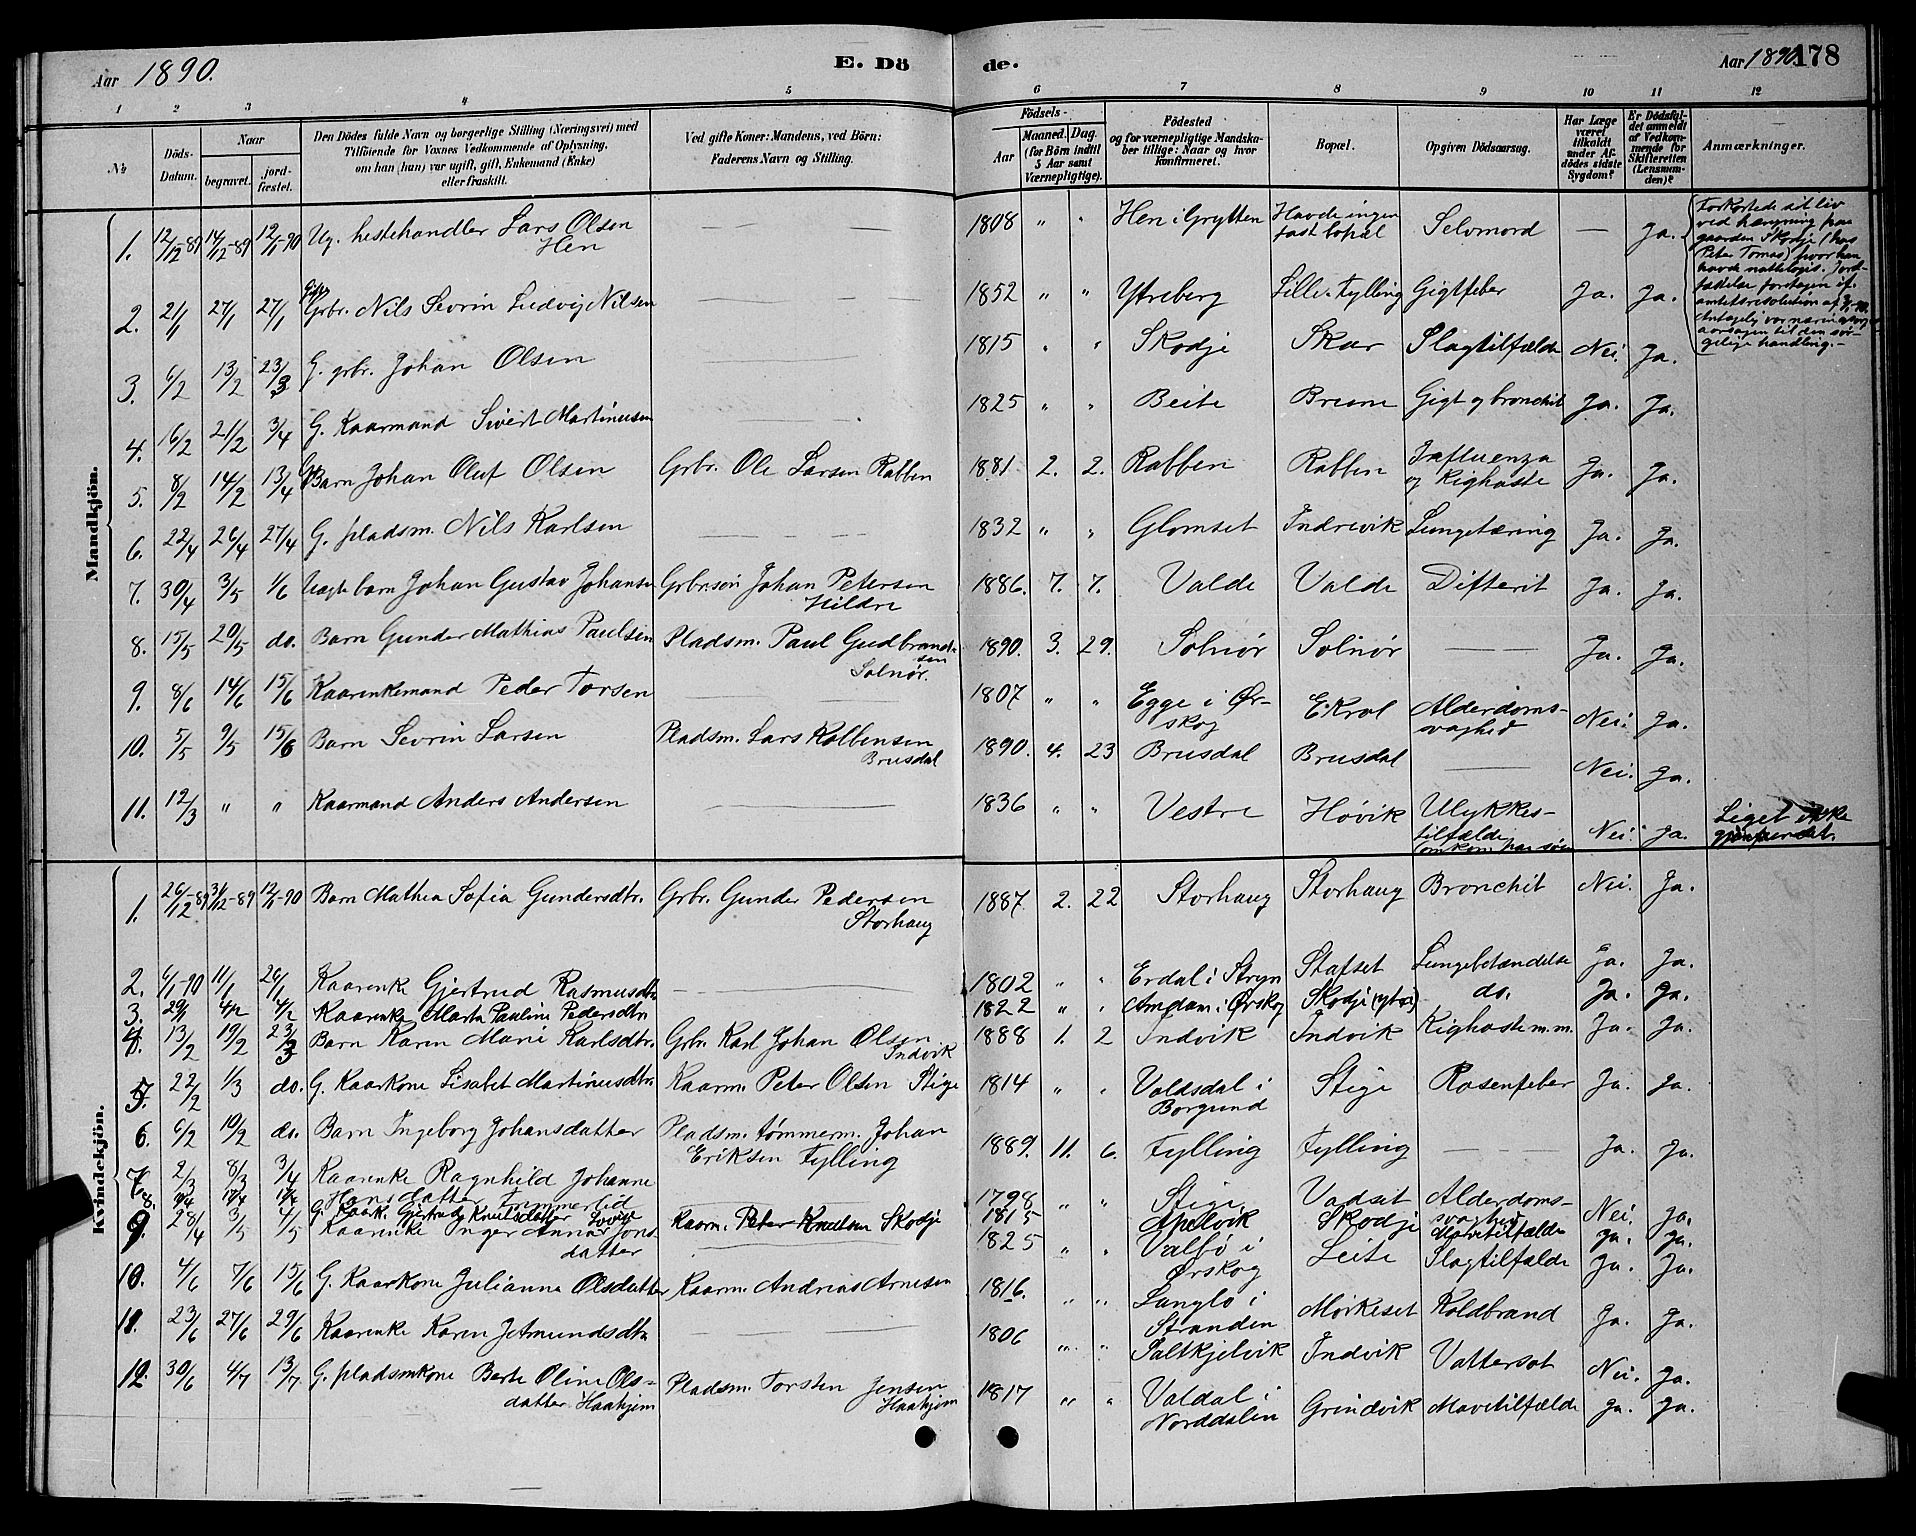 Aar 1890.
E. Dö
de.
Aar 1890. 178
1 2 3 4 5 6 7 8 9 10 11 12
№
Döds-Datum.
Naar
begravet.
jord-fæstet.
Den Dödes fulde Navn og borgerlige Stilling (Næringsvei) med
Tilföiende for Voxnes Vedkommende af Oplysning,
om han (hun) var ugift, gift, Enkemand (Enke)
eller fraskilt.
Ved gifte Koner: Mandens, ved Börn:
Faderens Navn og Stilling.
Födsels-
Aar
Maaned. Dag.
(for Börn indtil
5 Aar samt
Værnepligtige).
Födested
og for værnepligtige Mandska-
ber tillige: Naar og hvor
konfirmeret.
Bopæl.
Opgiven Dödsaarsag.
Har Læge
været
tilkaldt
under Af-
dödes sidste
Sygdom?
Er Dödsfal-
det anmeldt
af Vedkom-
mende for
Skifteretten
(Lensman-
den)?
Anmærkninger.
Mandkjön.
1. 12/12-89 14/12-89 12/1-90 Ug. hestehandler Lars Olsen Hen — 1808 " " Hen i Grytten Havde ingen fast bopæl Selvmord — Ja.
Forkortede sit liv
ved hængning paa
gaarden Skodje (hos
Peter Tomas) hvor han
havde nattelogis. Jord-
fæstelse foretagen if.
amtsresolution af
Antagelig var næringssorg
aarsagen til den sør-
gelige handling.-
2. 21/1 27/1 27/1 Gift Grbr. Nils Sevrin Ludvig Nilsen — 1852 " " Ytreberg Lille-Fylling Gigtfeber Ja. Ja.
3. 6/2 13/2 23/3 G. grbr. Johan Olsen 1815 " " Skodje Skar Slagtilfælde Nei. Ja.
4. 16/2 21/2 3/4 G. Kaarmand Sivert Martinusen 1825 " " Beite Brune Gigt og bronchit Ja. Ja.
5. 8/2 14/2 13/4 Barn Johan Oluf Olsen Grbr. Ole Larsen Rabben 1881 2. 2. Rabben Rabben Influenza og Kighoste Ja. Ja.
6. 22/4 26/4 27/4 G. pladsm. Nils Karlsen — 1832 " " Glomset Indrevik Lungetæring Ja. Ja.
7. 30/4 3/5 1/6 Uægte barn Johan Gustav Johansen Grbr.søn Johan Petersen Hildre 1886. 7. 7. Valde Valde Difterit Ja. Ja.
8. 15/5 20/5 do. Barn Gunder Mathias Paulsen Pladsm. Paul Gudbrandsen Solnør. 1890. 3. 29. Solnør Solnør — Ja. Ja.
9. 8/6 14/6 15/6 Kaarenkemand Peder Torsen — 1807 " " Egge i Ør-skog Ekrol Alderdoms-svaghed Nei. Ja.
10. 5/5 9/5 15/6 Barn Sevrin Larsen Pladsm. Lars Kolbensen Brusdal 1890. 4. 23 Brusdal Brusdal — Nei. Ja.
11. 12/3 " " Kaarmand Anders Andersen — 1836 " " Vestre Høvik Ulykkes-tilfælde (omkom paa søen Nei. Ja. Liget ikke gjenfundet.
Kvindekjön.
1. 26/12-89 31/12-89 12/1-90 Barn Mathea Sofia Gundersdtr. Grbr. Gunder Pedersen Storhaug 1887. 2. 22 Storhaug Storhaug Bronchit Nei. Ja.
2. 6/1-90 11/1 26/1 Kaarenke Gjertrud Rasmusdtr — 1802 " " Erdal i Stryn Stafset Lungebetændelse Ja. Ja.
3. 29/1 4/2 4/2 Kaarenke Marta Pauline Pedersdtr 1822 " " Amdam i Ørskog Skodje (ytre) do. Ja. Ja.
4. 13/2 19/2 23/3 Barn Karen Marie Karlsdtr. Grbr. Karl Johan Olsen Indvik 1888 1. 2 Indvik Indvik Kighoste m.m. Ja. Ja.
5. 22/2 1/3 do. G. Kaarkone Lisabet Martinusdtr. Kaarm. Peter Olsen Stige 1814 " " Valdsdal i Borgund Stige Rosenfeber Ja. Ja.
6. 6/2 10/2 do. Barn Ingeborg Johansdatter Pladsm. tømmerm. Johan Eriksen Fylling 1889. 11. 6. Fylling Fylling — Ja. Ja.
7. 2/3 8/3 3/4 Kaarenke Ragnhild Johanne Hansdatter Tømmerlid 1798 " " Stige Vadset Alderdoms-svaghed Nei. Ja.
8. G. Kaark. Gjertrud Knutsdatter Kaarm. Peter Knutsen Skodje 1815 Apelvik Skodje Mavetilfælde Ja. Ja.
9. 28/4 3/5 4/5 Kaarenke Inger Anna Jons datter — 1825 " " Valbø i Ørskog Leite Slagtilfælde Ja. Ja.
10. 4/6 7/6 15/6 G. Kaarkone Julianna Olsdatter Kaarm. Andreas Arnesen 1816. " " Langlo i Stranden Mørkeset Koldbrand Ja. Ja.
11. 23/6 27/6 29/6 Kaarenke Karen J. Amundsdtr — 1806 " " Saltkjelvik Indvik Vattersot Nei. Ja.
12. 30/6 4/7 13/7 G. pladsmkone Berte Oline Ols-datter Haakjem Pladsm. Torsten Jensen Haakjem 1817 " " Valdal i Norddalen Grindvik Mavetilfælde Ja. Ja.